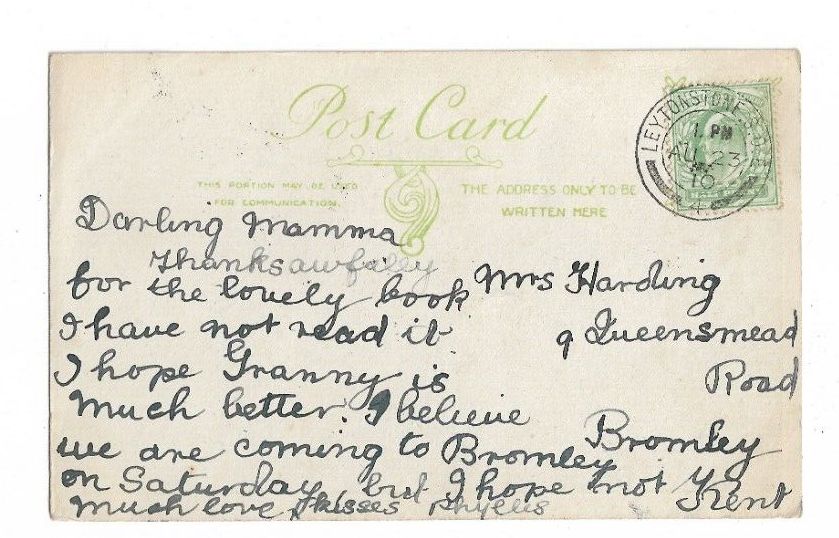 Post Card
THIS PORTION MAY BE USED
FOR COMMUNICATION.
THE ADDRESS ONLY TO BE
WRITTEN HERE
LEYTONSTONE
1 PM
AU 23
10
Darling Mamma
Thanks awfully
for the lovely book
I have not read it
I hope Granny is
much better. I believe
we are coming to Bromley
on Saturday, but I hope not
much love & kisses Phyllis
Mrs Harding
9 Queensmead
Road
Bromley
Kent